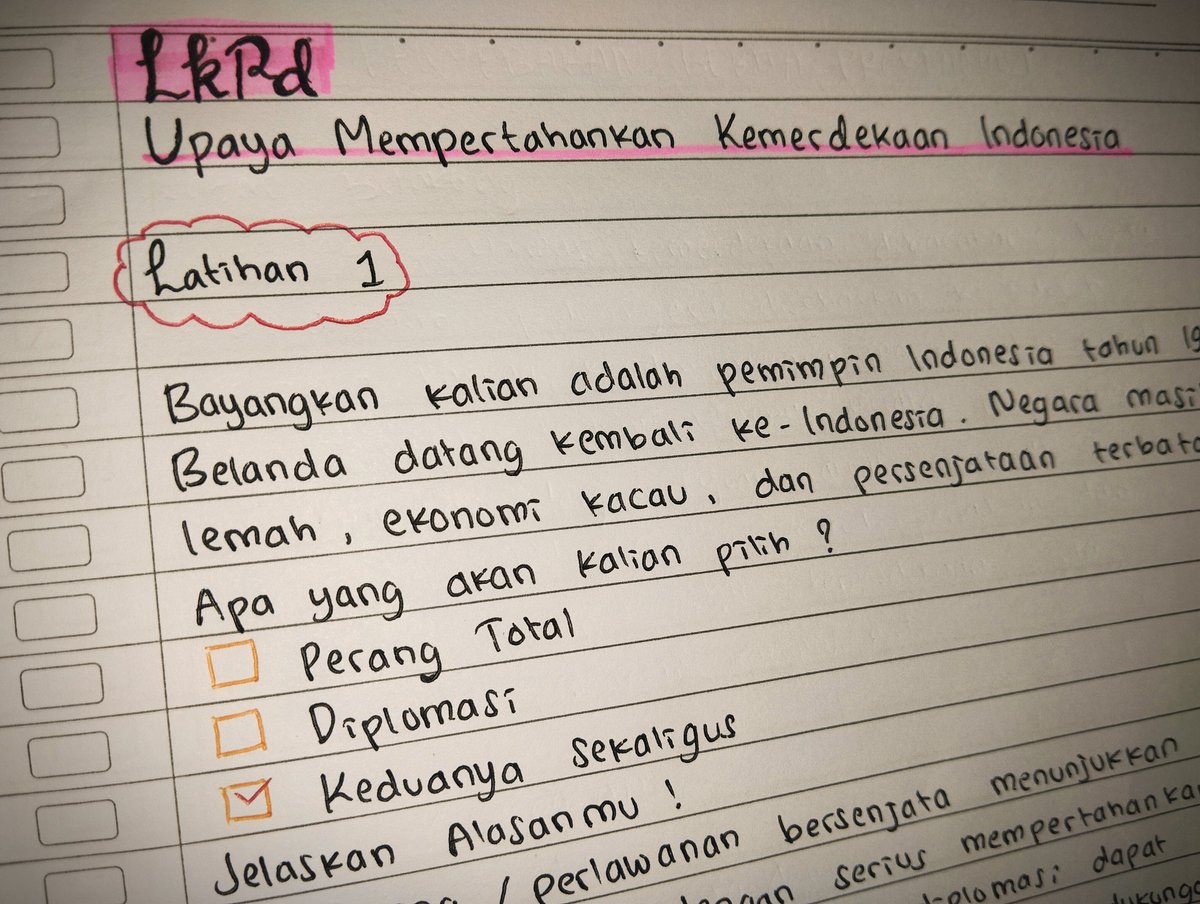 LkPd
Upaya Mempertahankan Kemerdekaan Indonesia
Latihan 1
Bayangkan kalian adalah pemimpin Indonesia tahun
Belanda datang kembali ke-Indonesia. Negara
lemah, ekonomi kacau, dan persenjataan
Apa yang akan kalian pilih?
Perang Total
Diplomasi
Keduanya sekaligus
Jelaskan Alasanmu!
/ perlawanan bersenjata menunjukkan
serius
diplomasi dapat